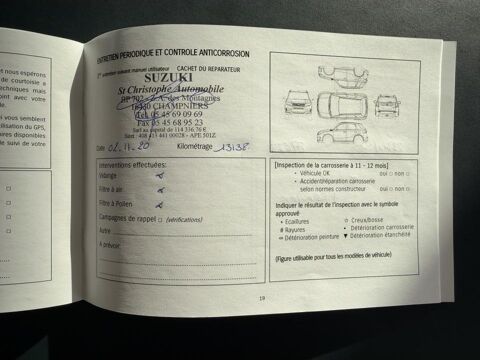 et nous espérons
de courtoisie a
techniques mais
oint avec votre
vous semblent
tilisation du GPS,
ires disponibles
de suivi de votre
ENTRETIEN PERIODIQUE ET CONTROLE ANTICORROSION
entretien suivant manuel utilisateur CACHET DU REPARATEUR
SUZUKI
St Christophe Automobile
BP 702 - Z.A. des Montagnes
16430 CHAMPNIERS
Tél. 05 45 69 09 69
Fax 05 45 68 95 23
Sarl au capital de 114 336,76 €
Date: 02.11.20 Kilométrage 13138
Interventions effectuées:
Vidange
Filtre à air
Filtre à Pollen
Campagnes de rappel □ (vérifications)
Autre
A prévoir:
[Inspection de la carrosserie à 11 - 12 mois]
• Véhicule OK oui □ non □
• Accident/réparation carrosserie
selon normes constructeur oui □ non □
Indiquer le résultat de l'inspection avec le symbole
approuvé
• Ecaillures ☆ Creux/bosse
# Rayures • Détérioration carrosserie
⇔ Détérioration peinture ▼ Détérioration étanchéité
(Figure utilisable pour tous les modèles de véhicule)
19